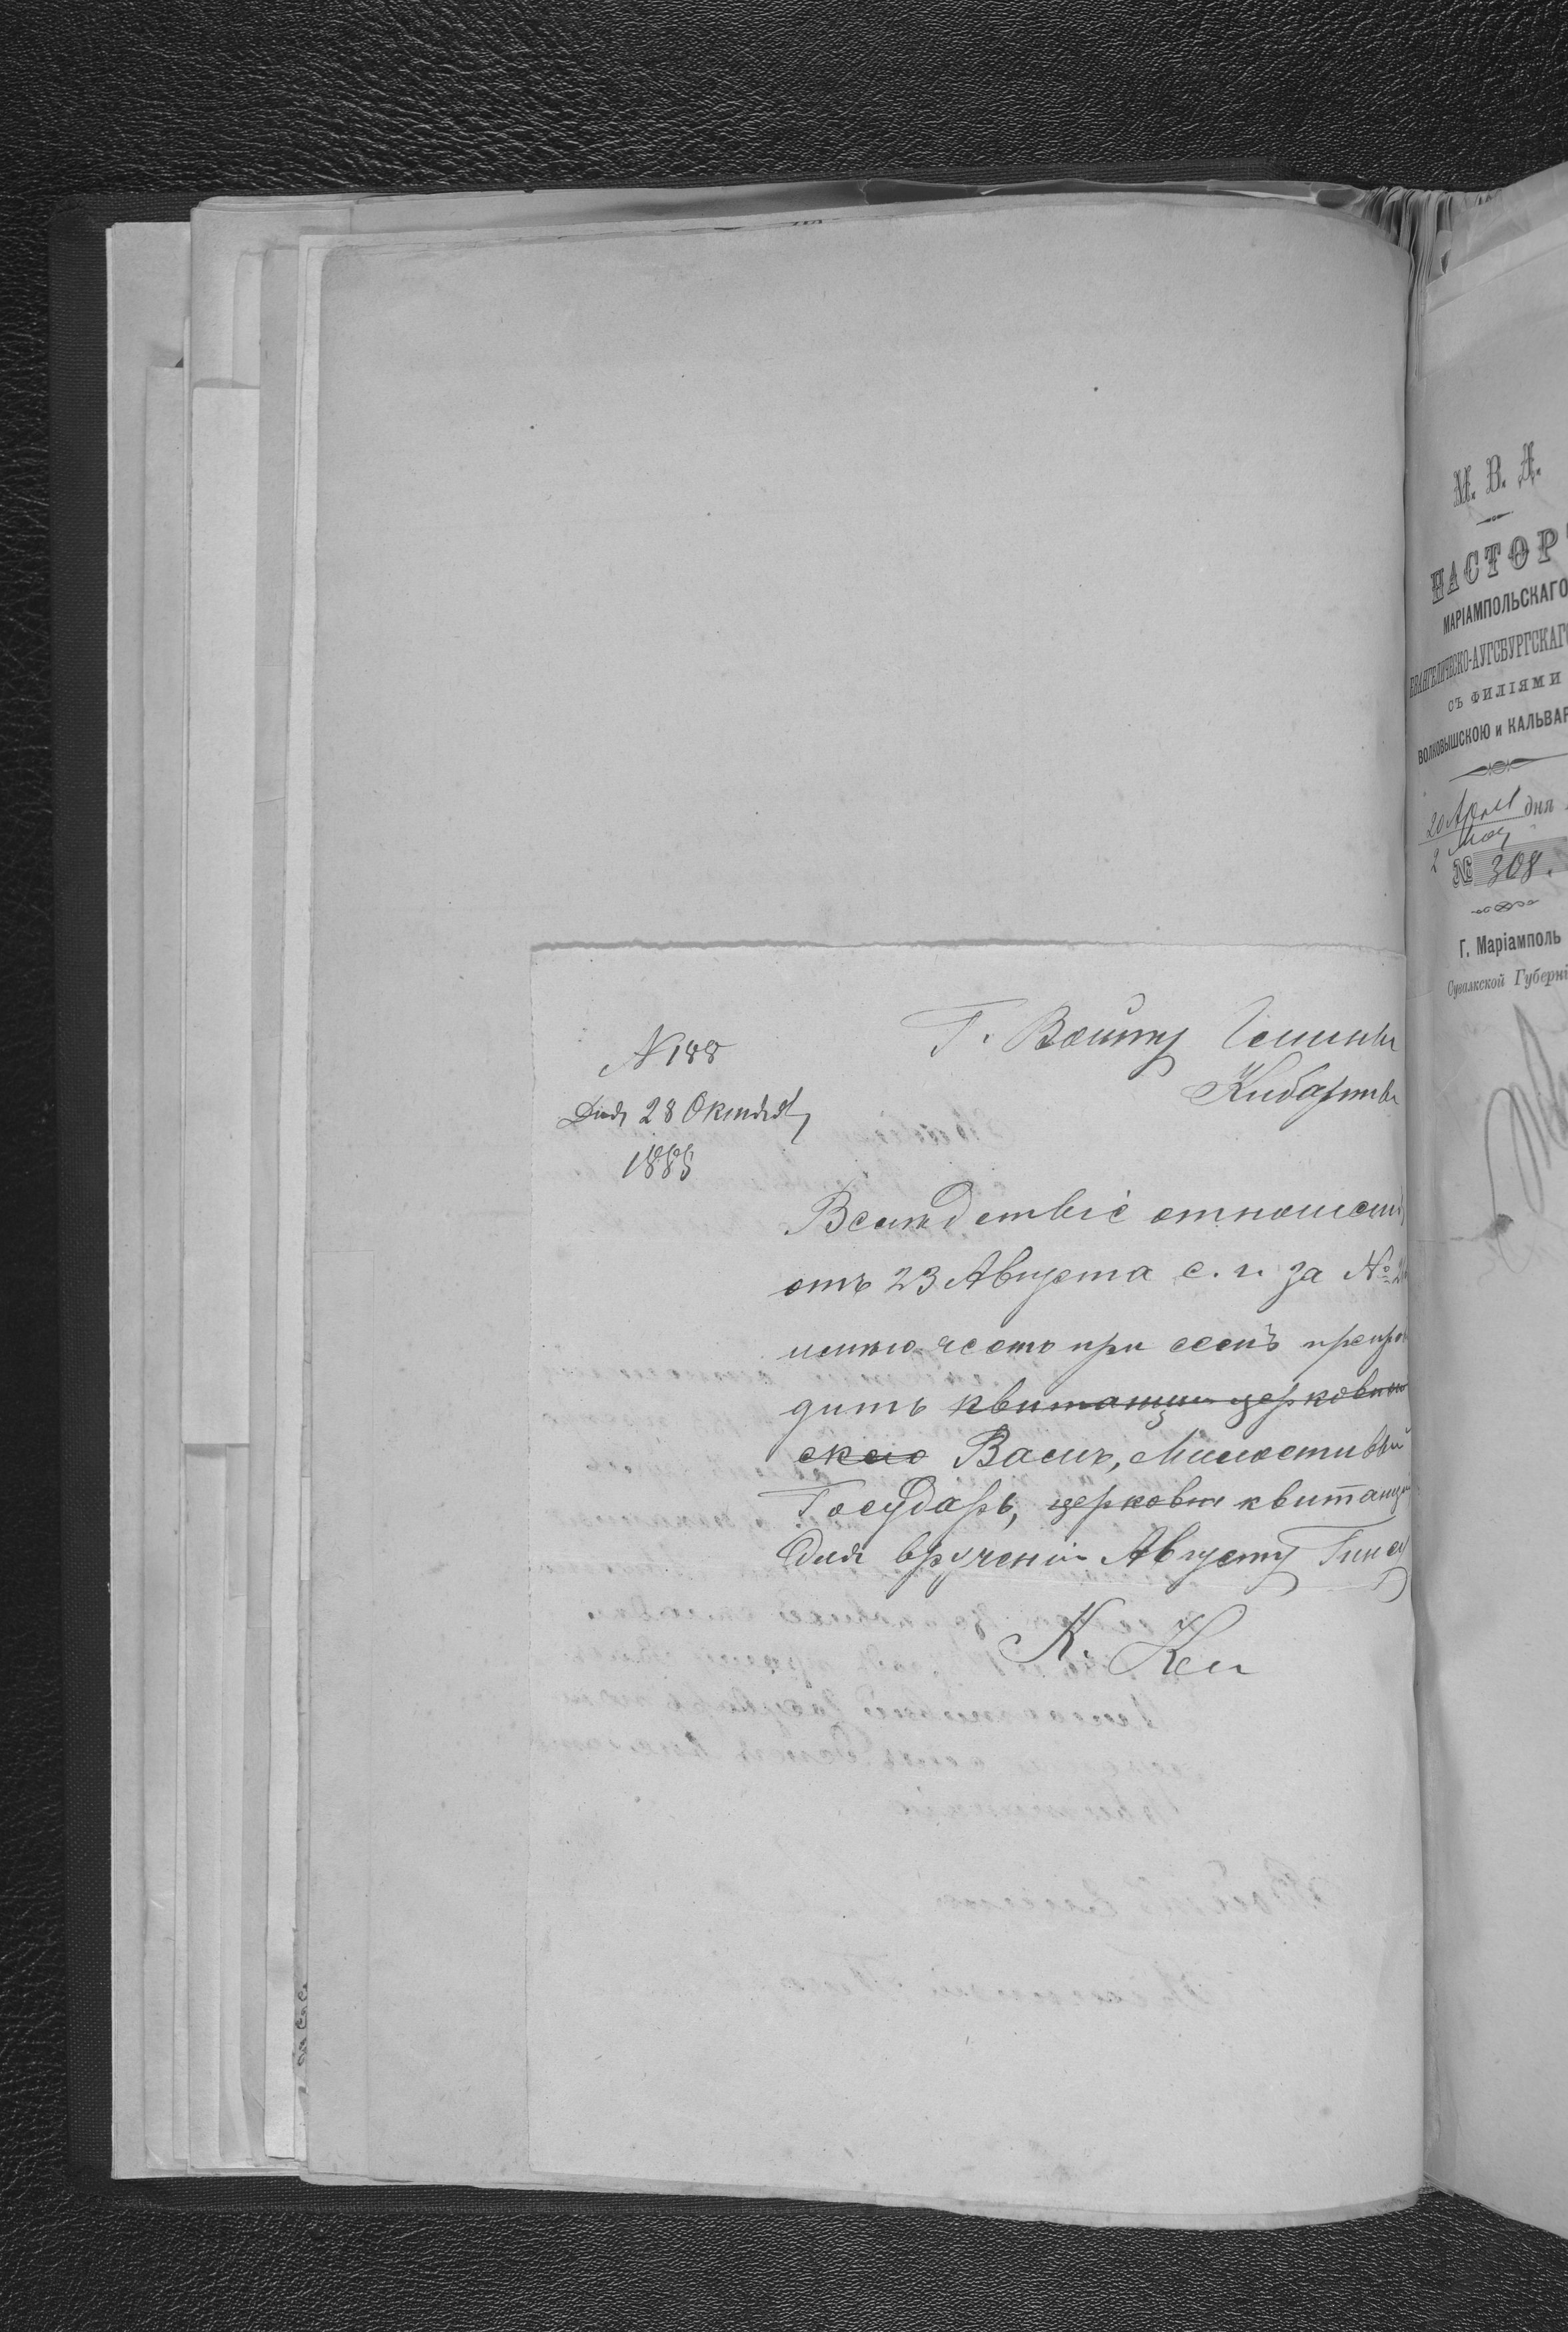 № 188
Дня 28 Октября
1885
Г. Войту Гмины
Кибарты
Вследствіе отношенія
отъ 23 Августа с. г. за №
имѣю честь при семъ препрово
дить квитанцию церковною
Вамъ, Милостивый
Государь, церковн квитанцій
для врученія Августу
К. Кел
М. В. Д.
ПАСТОРЪ
МАРІАМПОЛЬСКАГО
ЕВАНГЕЛИЧЕСКО-АУГСБУРГСКАГО
СЪ ФИЛІЯМИ
ВОЛКОВЫШСКОЮ и КАЛЬВАР
20 Апрля дня
2 Мая
№ 308.
Г. Маріамполь
Сувалкской Губерні